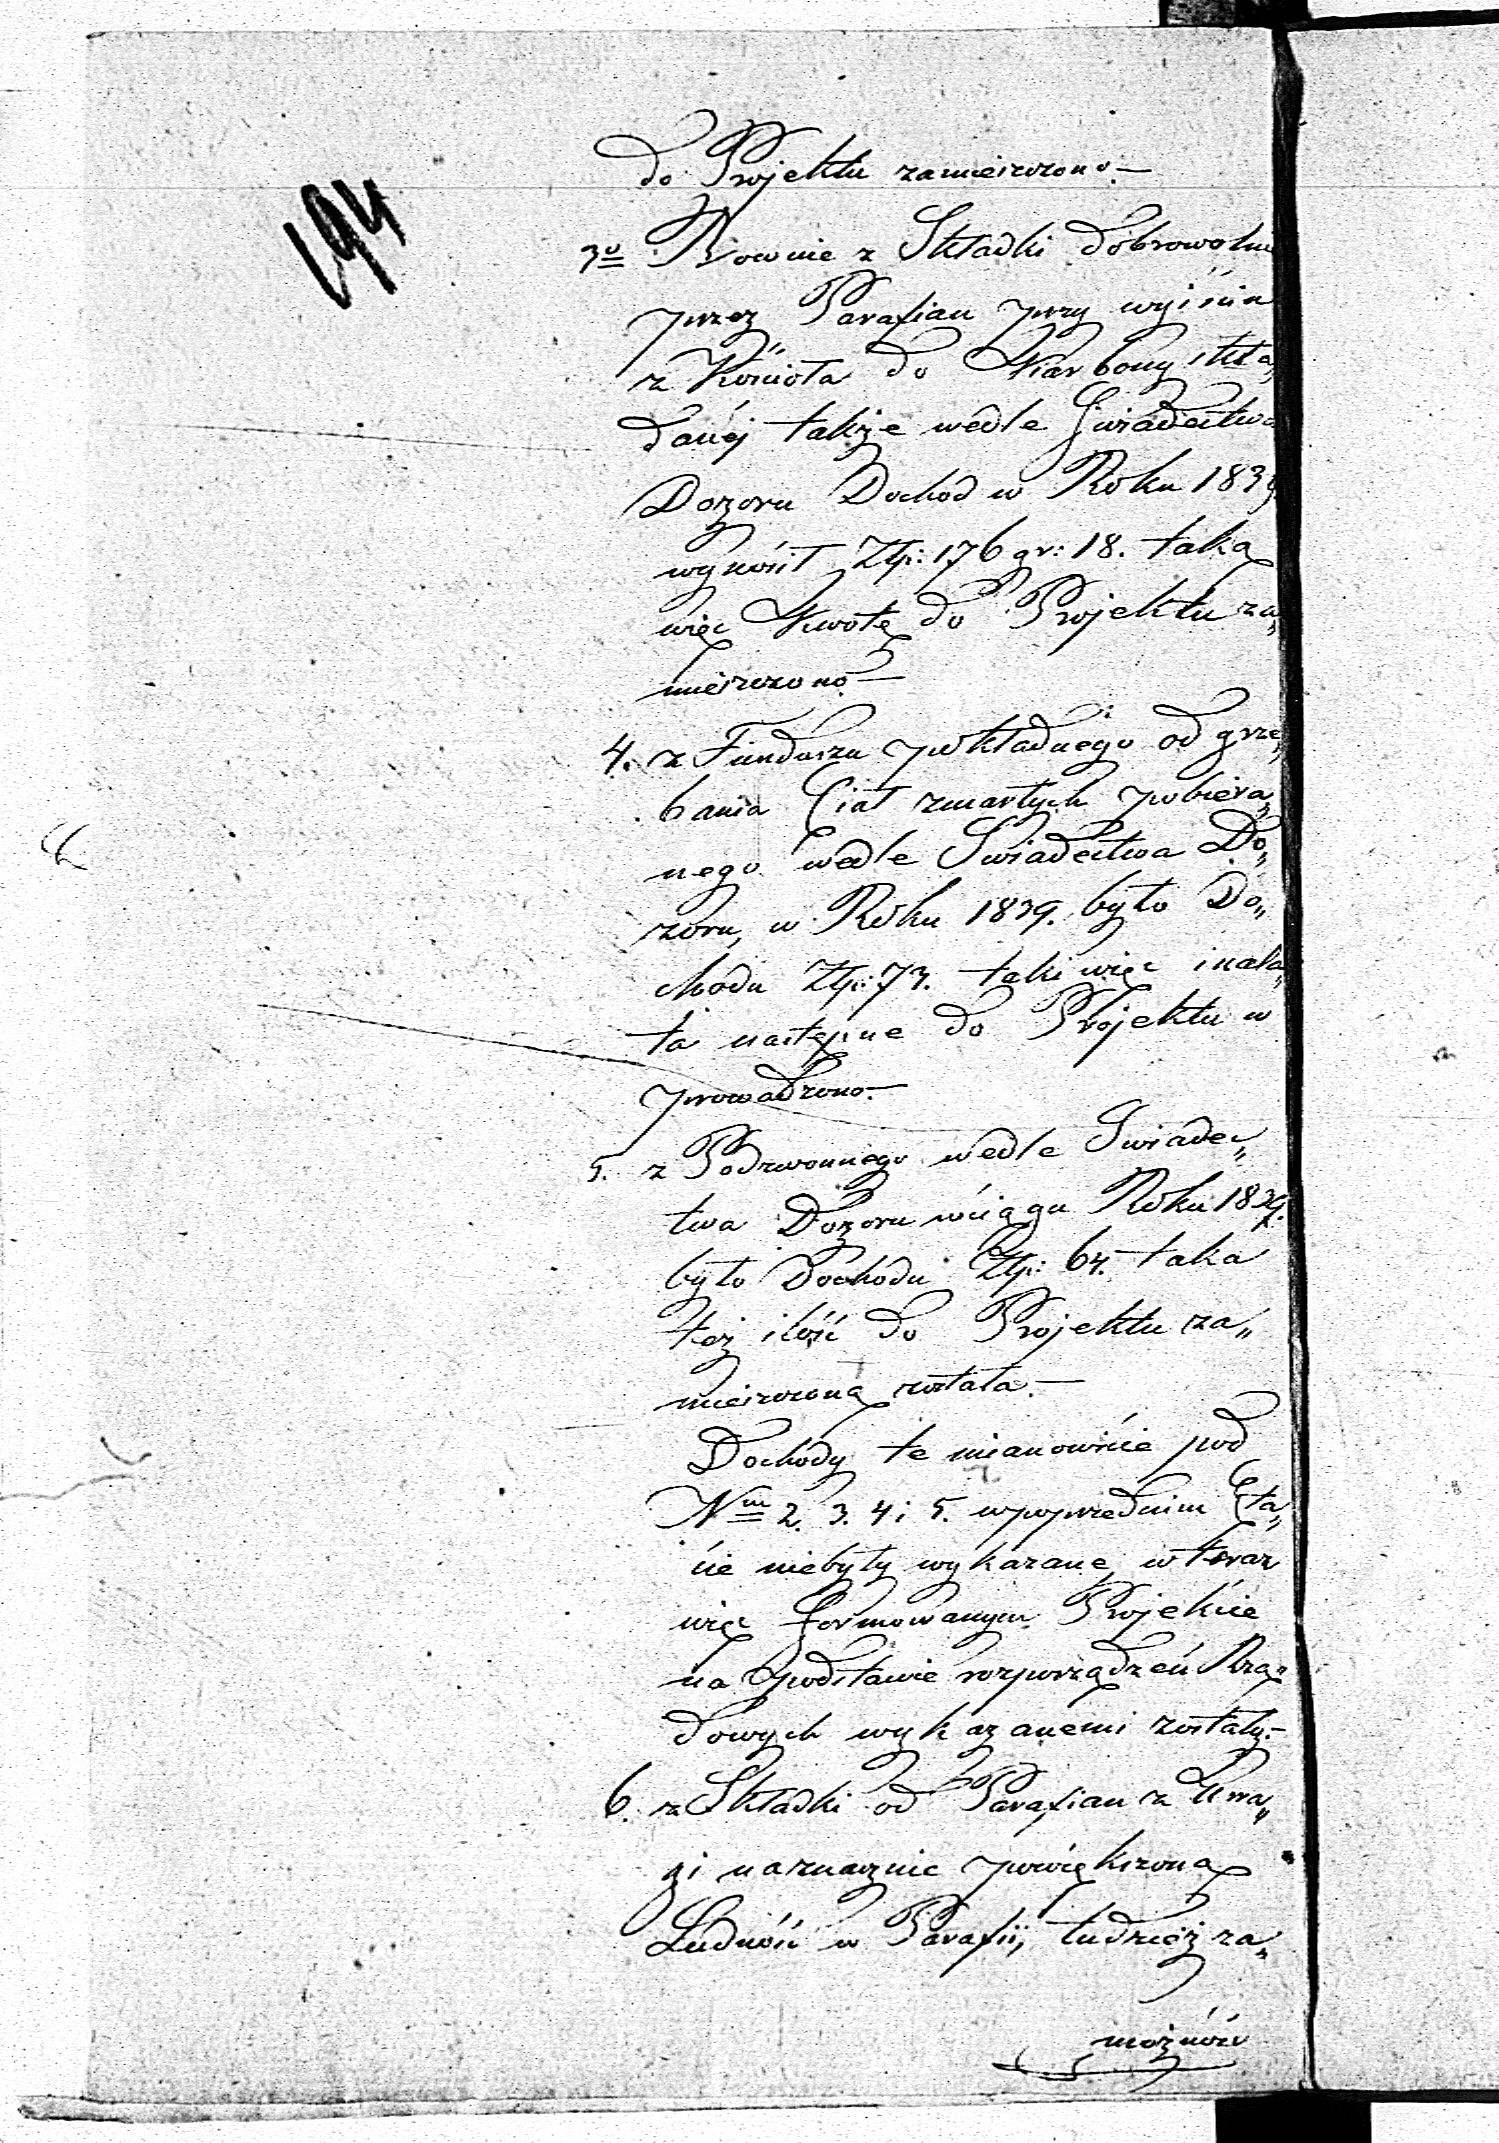 194
do Projektu zamieszczono.—
3o Rownie z Składki dobrowolnie
przez Parafian przy wyiściu
z Kościoła do Karbony skła„
danéj także wedle Swiadectwa
Dozoru Dochod w Roku 1839
wynosił Złp: 176 gr: 18. taką
więc Kwotę do Projektu za„
mieszczono.—
4. z Funduszu pokładnego od grze„
bania Ciał zmarłych pobiera„
nego wedle Swiadectwa Do„
zoru, w Roku 1839. było Do„
chodu Złp: 73. taki więc
ta nastepne do Projektu w
prowadzono.—
5. z Podzwonnego wedle Swiadec„
twa Dozoru wciągu Roku 1839.
było Dochodu Złp: 64. taka
też ilość do Projektu za„
mieszczoną została.—
Dochody te mianowicie pod
Nm 2. 3. 4 i 5. wpoprzednim Eta„
cie niebyły wykazane, w teraz
więc formowanym Projekcie
na podstawie rozporządzeń Rzą„
dowych wykazanemi zostały.—
6. z Składki od Parafian z Uwa„
gi naznacznie powiększoną
Ludność w Parafii, tudzież za„
możność